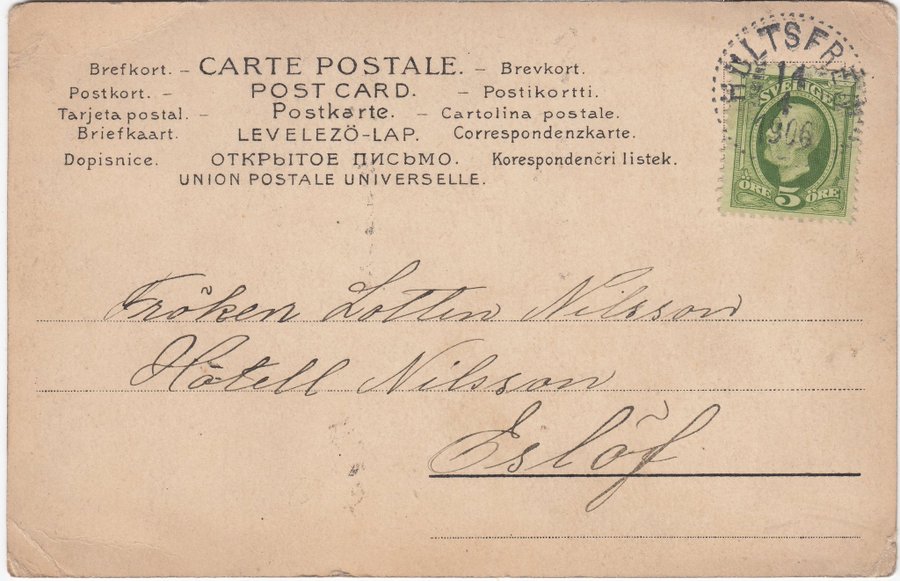 Brefkort. – CARTE POSTALE. – Brevkort.
Postkort. – POST CARD. – Postikortti.
Tarjeta postal. – Postkarte. – Cartolina postale.
Briefkaart. LEVELEZÖ-LAP. Correspondenzkarte.
Dopisnice. ОТКРЫТОЕ ПИСЬМО. Korespondenčri listek.
UNION POSTALE UNIVERSELLE.
HULTSFRED
14
1906
SVERIGE
ÖRE 5 ÖRE
Fröken Lotten Nilsson
Hôtell Nilsson
Eslöf